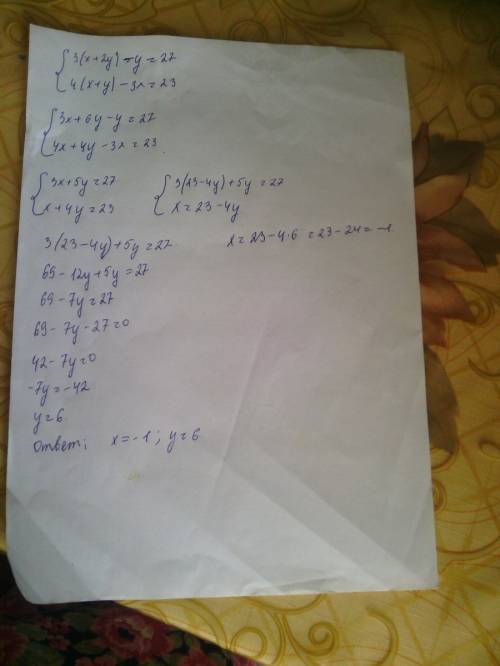 { 3(x+2y) - y = 27
{ 4(x+y) - 3x = 23
{ 3x + 6y - y = 27
{ 4x + 4y - 3x = 23
{ 3x + 5y = 27 { 3(23-4y) + 5y = 27
{ x + 4y = 23 { x = 23 - 4y
3(23-4y) + 5y = 27 x = 23 - 4·6 = 23 - 24 = -1
69 - 12y + 5y = 27
69 - 7y = 27
69 - 7y - 27 = 0
42 - 7y = 0
-7y = -42
y = 6
Ответ: x = -1; y = 6